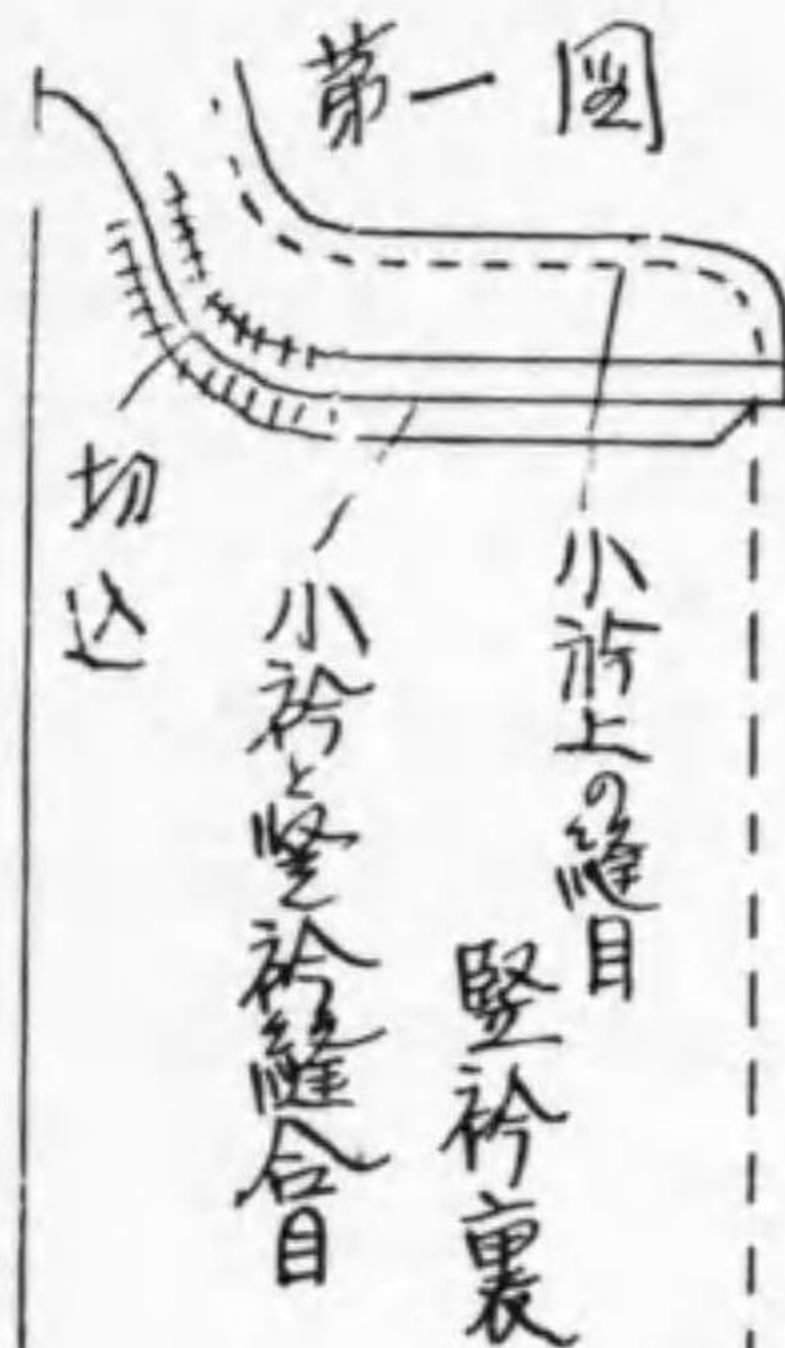 第一図
小衿上の縫目
竪衿裏
小衿と竪衿縫合目
切込